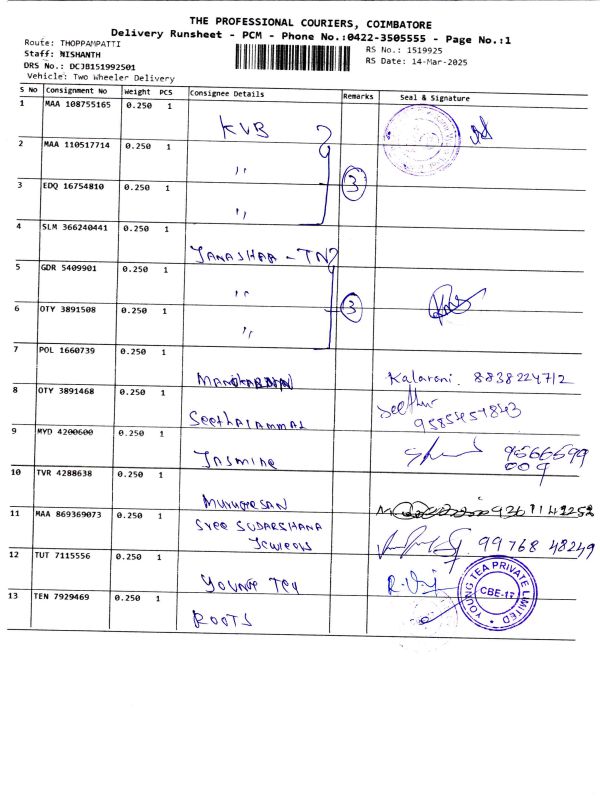 THE PROFESSIONAL COURIERS, COIMBATORE
Delivery Runsheet - PCM - Phone No.:0422-3505555 - Page No.:1
Route: THOPPAMPATTI
RS No.: 1519925
Staff: NISHANTH
RS Date: 14-Mar-2025
DRS No.: DCJB151992501
Vehicle: Two Wheeler Delivery
S No Consignment No Weight PCS Consignee Details Remarks Seal & Signature
1 MAA 108755165 0.250 1
KVB
2 MAA 110517714 0.250 1
"
3
3 EDQ 16754810 0.250 1
"
4 SLM 366240441 0.250 1
JANASHAA - TN
5 GDR 5409901 0.250 1
"
3
6 OTY 3891508 0.250 1
"
7 POL 1660739 0.250 1
Kalarani. 8838224712
8 OTY 3891468 0.250 1
Seethalammal
Seethu
9585451843
9 MYD 4200600 0.250 1
Jasmine
9566699
009
10 TVR 4288638 0.250 1
Murugesan
11 MAA 869369073 0.250 1
Sree SUDARSHANA
99768 48249
12 TUT 7115556 0.250 1
YOUNG TEA
YOUNG TEA PRIVATE LIMITED
CBE-17
13 TEN 7929469 0.250 1
ROOTS